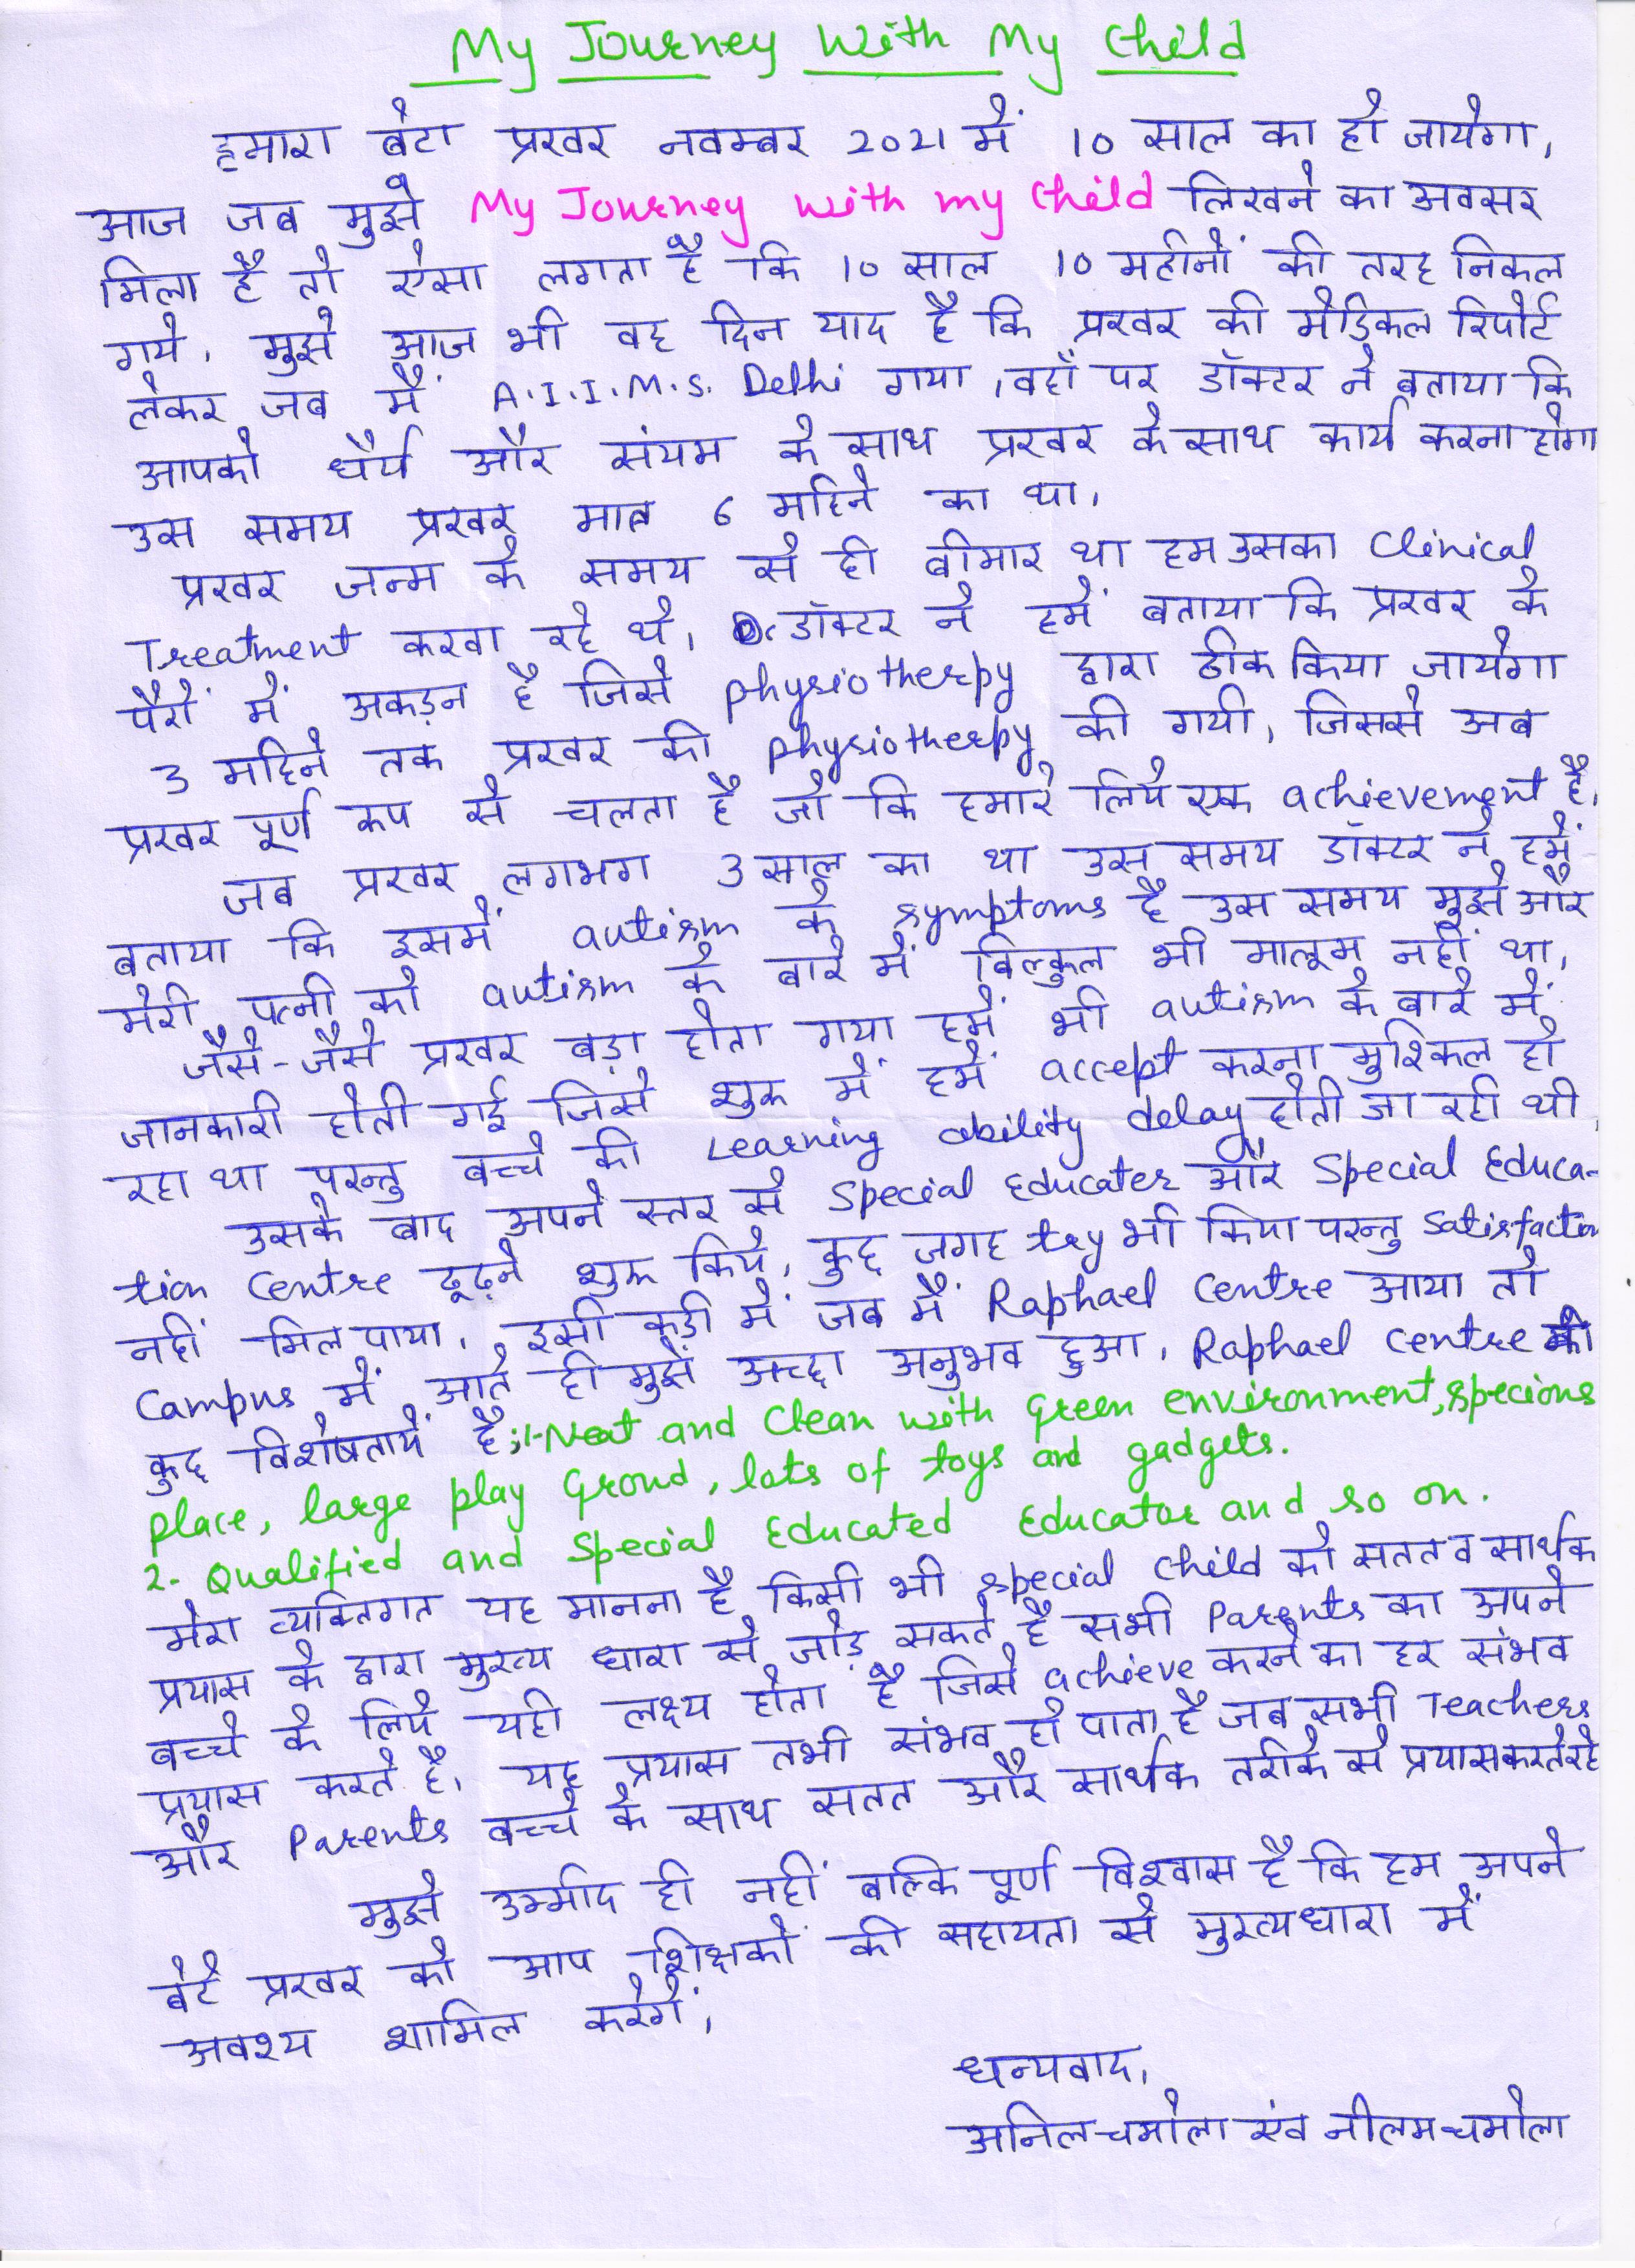 My Journey With My Child
हमारा बेटा प्रखर नवम्बर 2021 में 10 साल का हो जायेगा,
आज जब मुझे My Journey with my child लिखने का अवसर
मिला है तो ऐसा लगता है कि 10 साल 10 महीनों की तरह निकल
गये, मुझे आज भी वह दिन याद है कि प्रखर की मेडिकल रिपोर्ट
लेकर जब मैं A.I.I.M.S. Delhi गया, वहाँ पर डॉक्टर ने बताया कि
आपको धैर्य और संयम के साथ प्रखर के साथ कार्य करना होगा
उस समय प्रखर मात्र 6 महिने का था,
प्रखर जन्म के समय से ही बीमार था हम उसका Clinical
Treatment करवा रहे थे, डॉक्टर ने हमें बताया कि प्रखर के
पैरों में अकड़न है जिसे physiotherpy द्वारा ठीक किया जायेगा
3 महिने तक प्रखर की physiotherpy की गयी, जिससे अब
प्रखर पूर्ण रूप से चलता है जो कि हमारे लिये एक achievement है,
जब प्रखर लगभग 3 साल का था उस समय डॉक्टर ने हमें
बताया कि इसमें autism के symptoms है उस समय मुझे और
मेरी पत्नी को autism के बारे में बिल्कुल भी मालूम नहीं था,
जैसे-जैसे प्रखर बड़ा होता गया हमें भी autism के बारे में
जानकारी होती गई जिसे शुरू में हमें accept करना मुश्किल हो
रहा था परन्तु बच्चे की Learning ability delay होती जा रही थी
उसके बाद अपने स्तर से Special Educater और Special Educa-
tion Centre ढूढ़ने शुरू किये, कुछ जगह try भी किया परन्तु Satisfaction
नहीं मिल पाया, इसी कड़ी में जब मैं Raphael Centre आया तो
Campus में आते ही मुझे अच्छा अनुभव हुआ, Raphael Centre की
कुछ विशेषतायें है;1-Neat and Clean with Green environment, specious
place, large play Ground, lots of toys and gadgets.
2- Qualified and Special Educated Educator and so on.
मेरा व्यक्तिगत यह मानना है किसी भी special child को सतत व सार्थक
प्रयास के द्वारा मुख्य धारा से जोड़ सकते है सभी Parents का अपने
बच्चे के लिये यही लक्ष्य होता है जिसे achieve करने का हर संभव
प्रयास करते है, यह प्रयास तभी संभव हो पाता है जब सभी Teachers
और Parents बच्चे के साथ सतत और सार्थक तरीके से प्रयास करते रहे
मुझे उम्मीद ही नहीं बल्कि पूर्ण विश्वास है कि हम अपने
बेटे प्रखर को आप शिक्षकों की सहायता से मुख्यधारा में
अवश्य शामिल करेगें,
धन्यवाद,
अनिल चमोला एंव नीलम चमोला